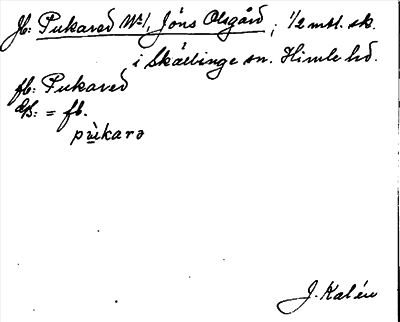 Jb: Pukared Nº1, Jöns Olsgård; 1/2 mtl. sk.
i Skällinge sn. Himle hd.
fb: Pukared
df: = fb.
pùkarə
J. Kalén